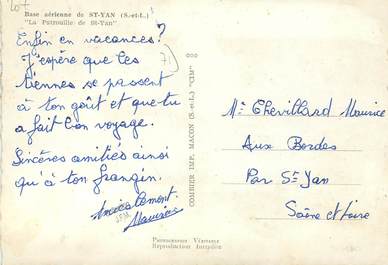 Base aérienne de ST-YAN (S.-et-L.)
"La Patrouille de St-Yan"
Enfin en vacances?
J'espère que les
tiennes se passent
à ton goût et que tu
a fait bon voyage.
Sincères amitiés ainsi
qu'à ton frangin.
Maurice
COMBIER IMP. MACON (S.-et-L.) "CIM"
Mr Chevillard Maurice
Aux Bordes
Par St Yan
Saône et Loire
Reproduction Interdite